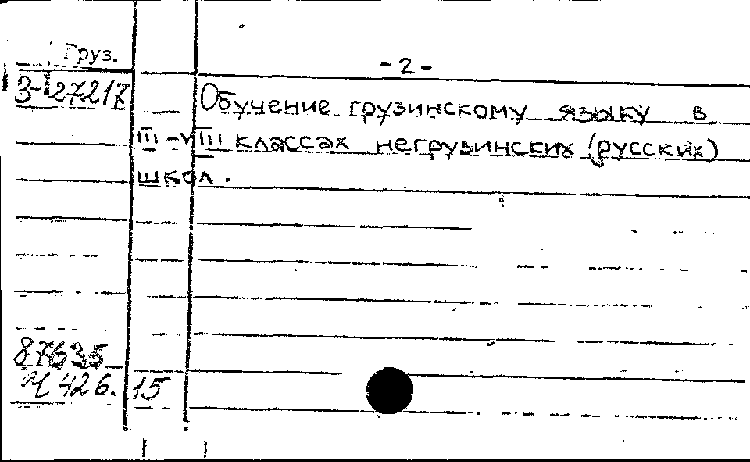 Груз.
- 2 -
3-27217
Обучение грузинскому языку в
III - VIII классах негрузинских (русских)
школ.
87635
Ч 426. 15